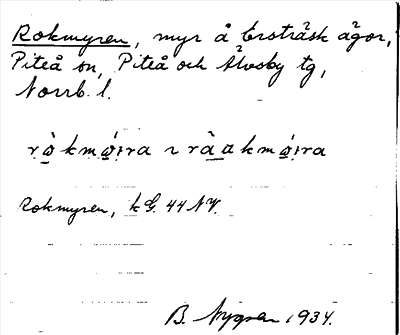 Rokmyren, myr å Ersträsk ägor,
Piteå sn, Piteå och Älvsby tg,
Norrb. l.
Rokmyren, kG. 44 NV.
B. Nygren 1934.